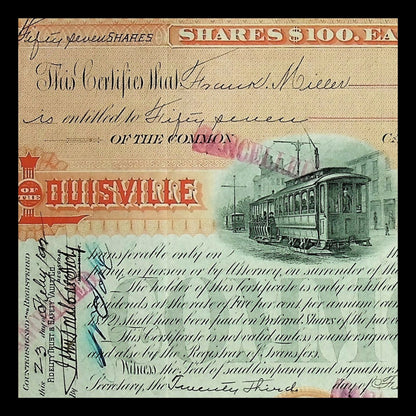 Fifty seven SHARES
SHARES $100. EA
This Certifies that Frank Miller
is entitled to Fifty seven
OF THE COMMON CA
CANCELLED
OF THE
OUISVILLE
transferable only on
in person or by Attorney, on surrender of th
The holder of this Certificate is entitled only to
dividends at the rate of Five per cent per annum
shall have been paid on Preferred Shares of the
This Certificate is not valid unless countersigned
and also by the Registrar of Transfers.
Witness the Seal of said Company and signature
Secretary, this Twenty Third day of
COUNTERSIGNED AND REGISTERED
this 23 day of July
FIDELITY TRUST & SAFETY VAULT CO.